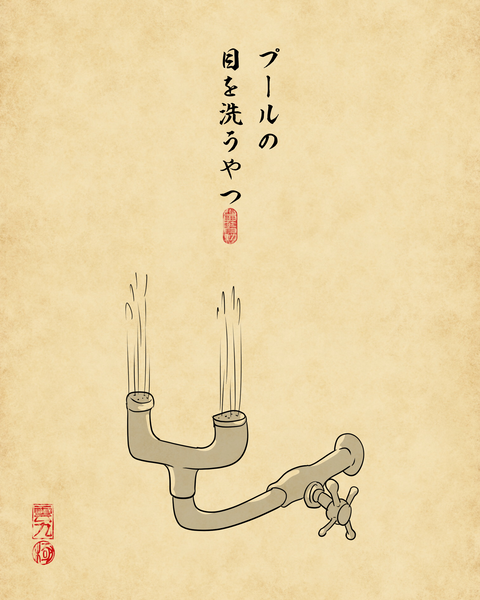 プールの
目を洗うやつ